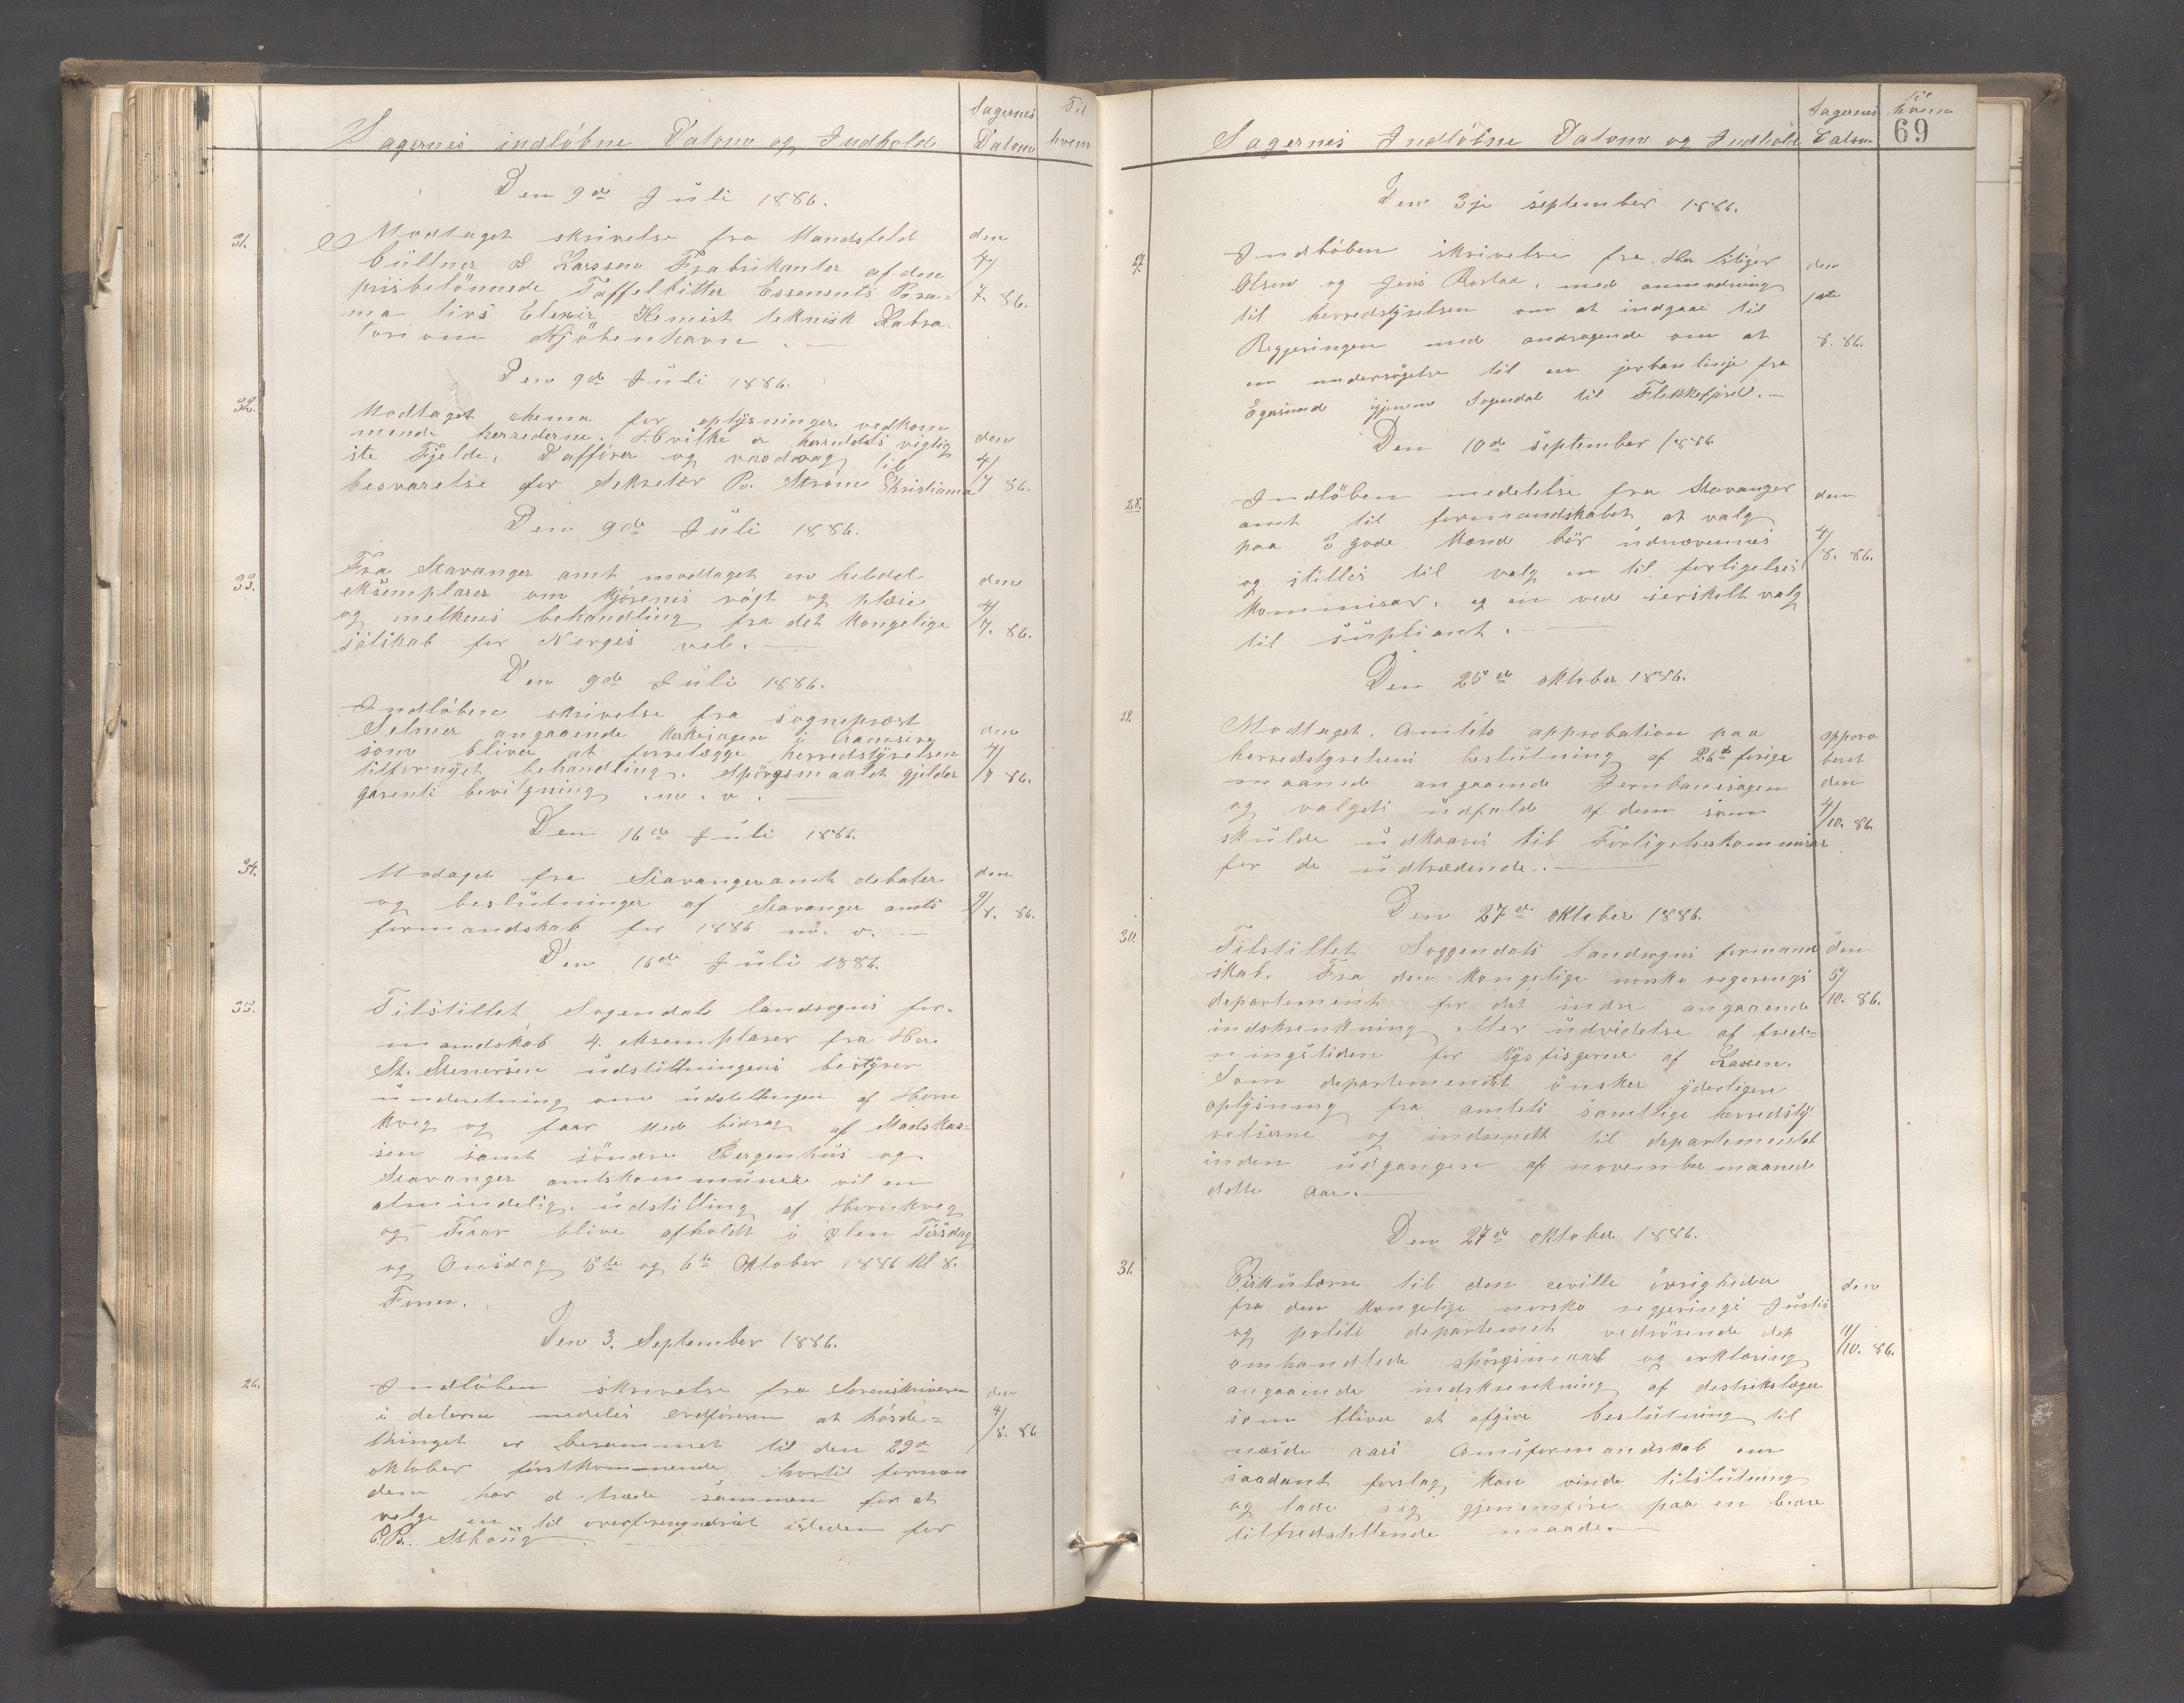 Sagernes indløbne Datome og Indhold
Sagernes Datome
Til hvem
Den 9de Juli 1886.
31.
Modtaget skrivelse fra Mandsfeld
büllner & Larssen Frabrikanter af den
prisbelönnede Taffelbitter Essensents Bra=
ma livs Elexir, Kemist teknisk Labra
torium Kjöbenhavn. —
den 4/7. 86.
Den 9de Juli 1886.
32.
Modtaget chema for oplysninger vedkom
mende herrederne. Hvilke er herreddets vigtig
ste Fjelde, Daffører og vasdrag til
besvarelse for Sekretær B. Strøm Christiania
den 4/7 86.
Den 9de Juli 1886.
33.
Fra Stavanger amt modtaget en heldel
eksemplarer om Kjørenes røgt og pleie
og melkens behandling fra det Kongelige
sælskab for Norges vel. —
den 4/7. 86.
Den 9de Juli 1886.
Indløben skrivelse fra sogneprest
Selmer angaaende Kirkesagen i
som bliver at forrelægge herredstyrelsen
tilfornyet behandling. Spörgsmaalet gjelder
garenti bevilgning m. v. —
den 7/7 86.
Den 16de Juli 1886.
34.
Modaget fra Stavanger amt debater
og beslutninger af Stavanger amts
formandskab for 1886 m. v. —
den 9/8. 86.
Den 16de Juli 1886.
35.
Tilstillet Sogendals landsogns for=
mandskab 4. eksemplarer fra Her.
St. Stenersen udstillningens bestyrer
underetning om udstellingen af Horn
kveg og faar med bidrag af Stadskas=
sen samt søndre Bergenhus og
Stavanger amtskommuner vil en
almindelig udstilling af Hornkveg
og Faar blive afholdt i Ølen Tirsdag
og Onsdag 5te og 6te Oktober 1886 kl 8.
Form.
Den 3. September 1886.
26.
Indløben skrivelse fra Sorenskriveren
i dalerne medeles ordføreren at høsde=
thinget er berammet til den 29de
oktober förstkommende, hvortil forman
den har at træde sammen for at
velge en til overforengndrot isteden for
P.B. Skaug —
den 4/8. 86
Sagernes Indløbne Datome og Indhold
Sagernes Datom
til hvem
69
Den 3je september 1886.
27.
Indløben skrivelse fra Her
Olsen og Jens Rostaa, med anmodning
til herredstyrelsen om at indgaae til
Regjeringen med andragende om at
en undersøgelse til en jerban linje fra
Egersund igjenem Sogendal til Flekkefjord. —
den 1ste 8. 86.
Den 10de september 1886
28.
Indløben medelelse fra Stavanger
amt til formandskabet at valg
paa 3 gode Mænd bør udnævennes
og stilles til valg en til forligelses
kommisær, og en ved serskelt valg
til supliant. —
den 4/8. 86.
Den 25de oktober 1886.
29.
Modtaget. Amtets approbation paa
herredstyrelsens beslutning af 26de forige
maaned angaaende Jernbanesagen
og valgets udfald af dem som
skulde udkaars til Forligelseskommisær
for de udtrædende. —
approberet den 4/10. 86.
Den 27de oktober 1886.
30.
Tilstillet Soggendals landsogns formand
skab. Fra den Kongelige norske regerings
departement for det indre angaaende
indskrenkning eller udvidelse af fred=
ningstiden for Kysfisgerne af Laxen.
Som departementet ønsker yderligere
oplysning fra amtets samtlige herredsty
relserne og indsendt til departementet
inden udgangen af november maaned
dette aar. —
den 5/10. 86.
Den 27de oktober 1886.
31.
Cirkülære til den ceville øvrigheder
fra den Kongelige norske regjerings Justis
og politi departemet vedrørende det
omhandlede spörgsmaal og erklæring
angaainde indskrenkning af destrikslæger
som bliver at afgive beslutning til
næsde aars Amsformandskab om
saadant forslag kan vinde tilslutning
og lade sig gjenemføre paa en bedre
tilfredstillende maade. —
den 11/10. 86.